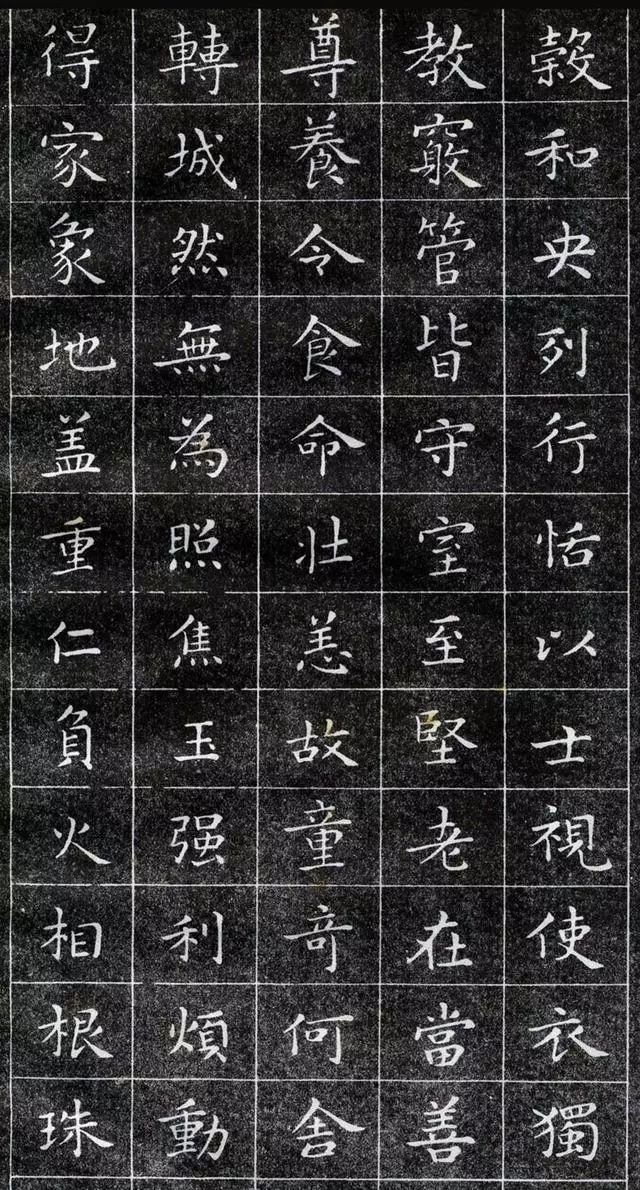 穀和央列行恬以士視使衣獨
教竅管皆守室至堅老在當善
尊養令食命壯恙故童竒何舍
轉城然無為照焦玉强利煩動
得家象地盖重仁負火相根珠